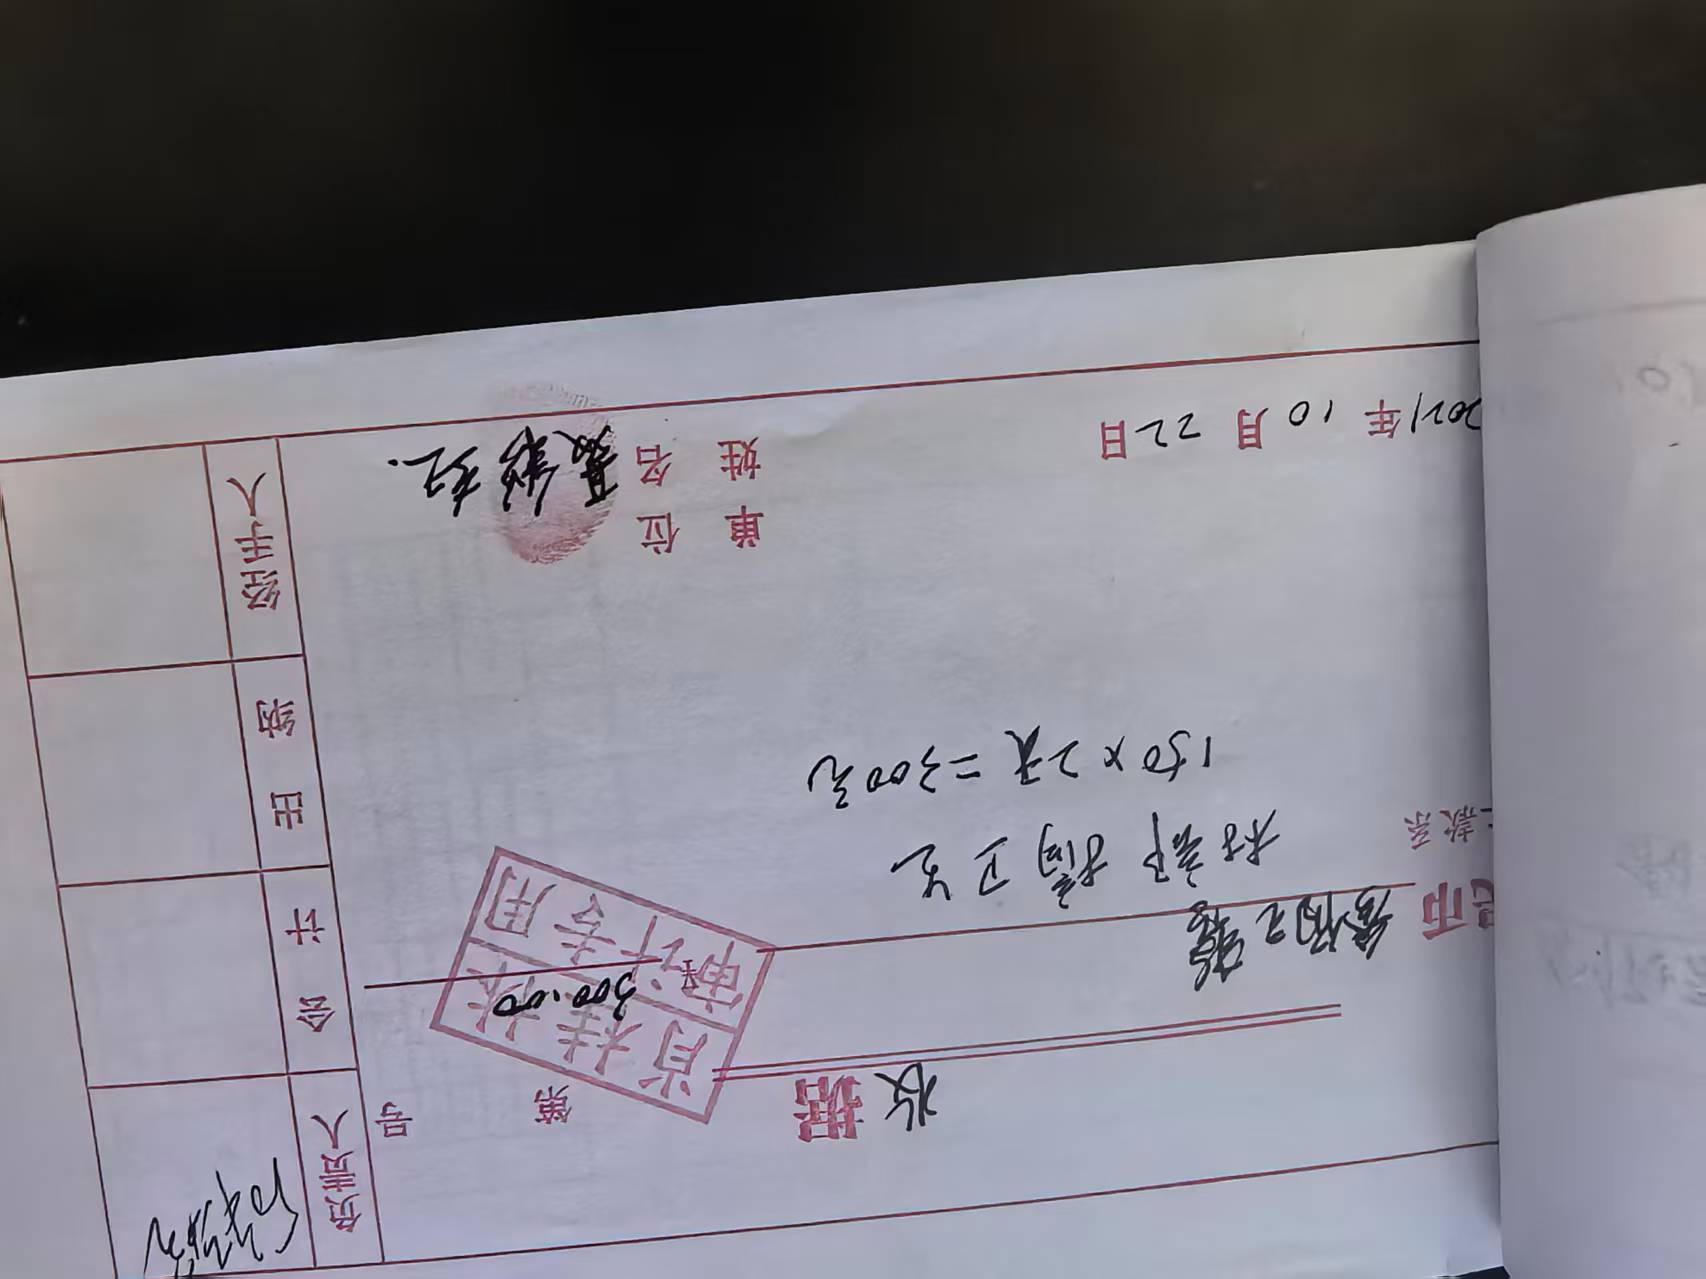 收据
第 号
民币 叁佰元整 ¥ 300.00
肖桂村
审计专用
款系 村部搞卫生
150×2天=300元
单位
姓名
2021年10月22日
负责人
会计
出纳
经手人